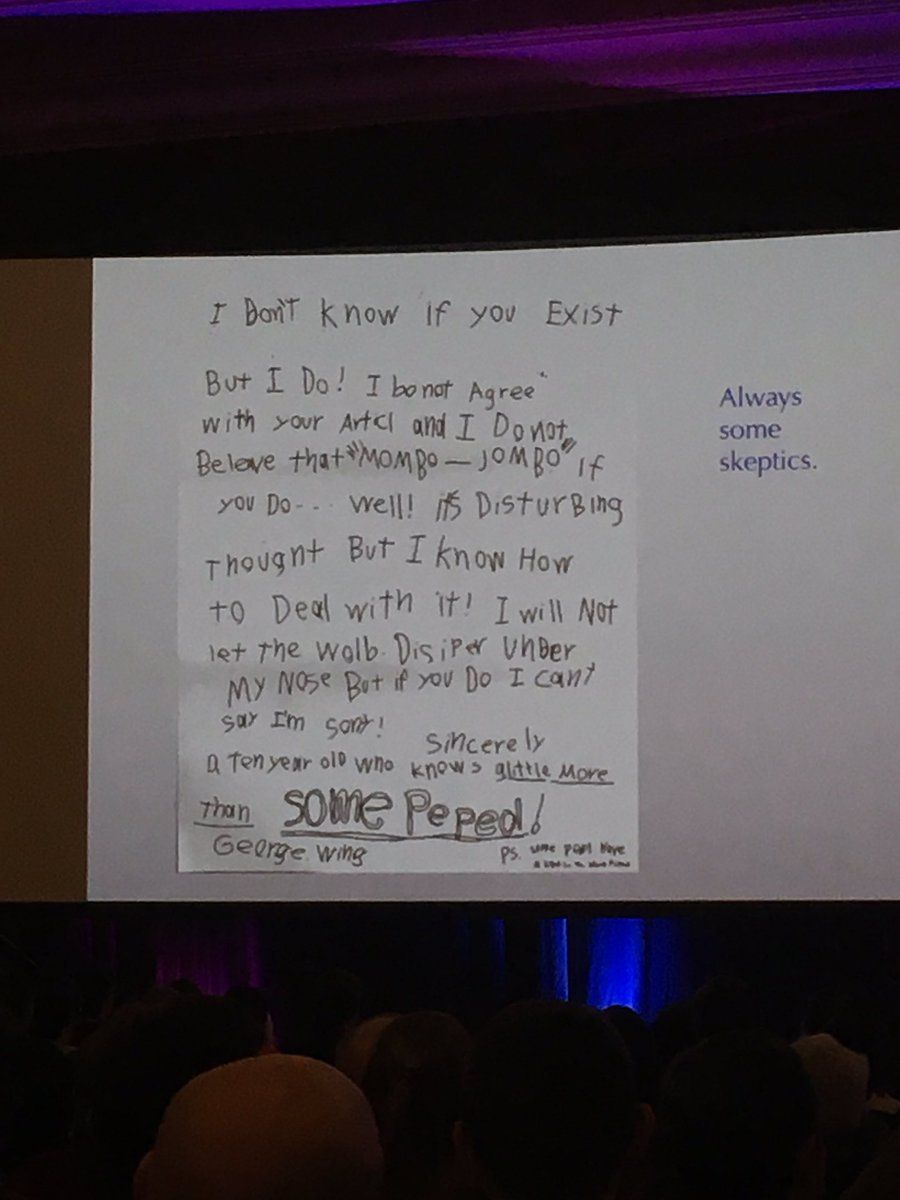 I Don't know if you Exist
But I Do! I bo not Agree
with your Artcl and I Do not
Beleve that "MOMBO — JOMBO" If
you Do--- well! it's DisturBing
Thought But I know How
to Deal with it! I will Not
let the wolb Disiper UnDer
My Nose But if you Do I can't
say I'm sorry!
Sincerely
a Ten year old who knows alittle More
Than some Peped!
George Wing
Ps. some
Always
some
skeptics.